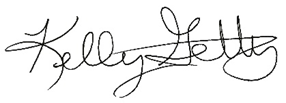 Kelly Getty